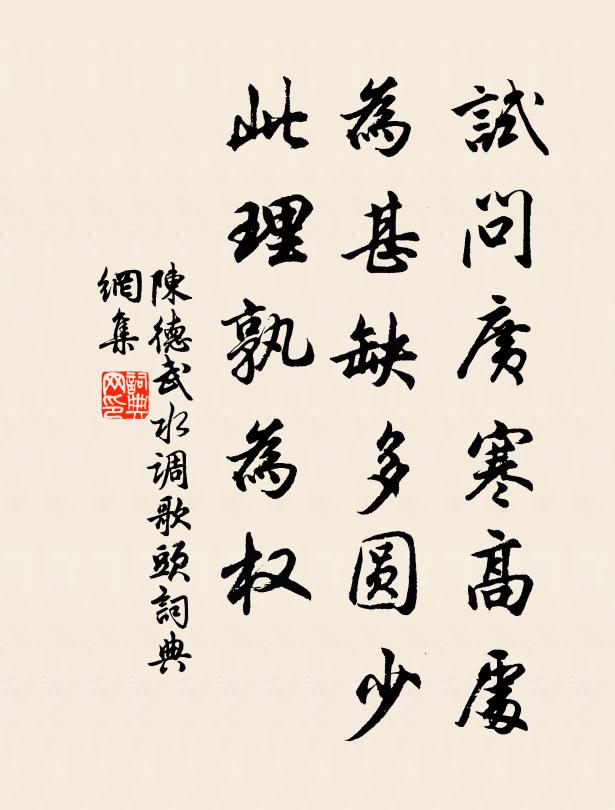 試問廣寒高處
為甚缺多圆少
此理孰為权
陳德武水调歌頭詞典
網集
詞典
网印